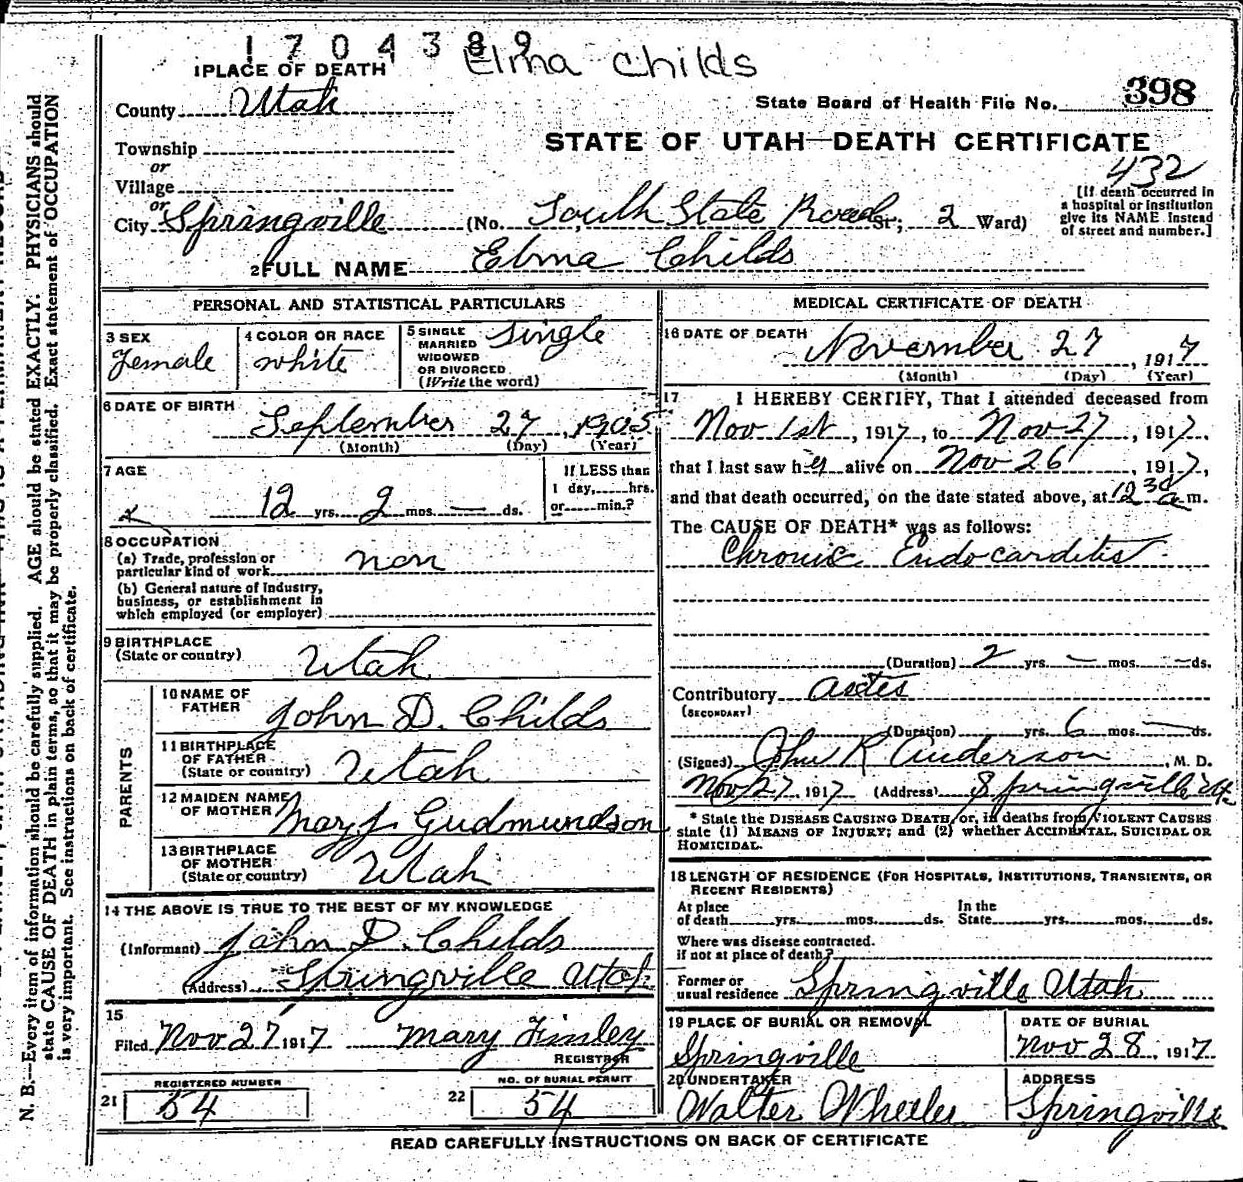 1704389 Elma Childs
1 PLACE OF DEATH
County Utah
State Board of Health File No. 398
Township
or
Village
or
City Springville
STATE OF UTAH—DEATH CERTIFICATE
432
(No. South State Road St; 2 Ward)
[If death occurred in
a hospital or institution
give its NAME instead
of street and number.]
2 FULL NAME Elma Childs
PERSONAL AND STATISTICAL PARTICULARS
3 SEX
Female
4 COLOR OR RACE
White
5 SINGLE
MARRIED
WIDOWED
OR DIVORCED
(Write the word)
Single
6 DATE OF BIRTH
September 27, 1905
(Month) (Day) (Year)
7 AGE
12 yrs. 2 mos. — ds.
If LESS than
1 day, hrs.
or min.?
8 OCCUPATION
(a) Trade, profession or
particular kind of work non
(b) General nature of industry,
business, or establishment in
which employed (or employer)
9 BIRTHPLACE
(State or country) Utah
PARENTS
10 NAME OF
FATHER John D. Childs
11 BIRTHPLACE
OF FATHER
(State or country) Utah
12 MAIDEN NAME
OF MOTHER Mary J. Gudmundson
13 BIRTHPLACE
OF MOTHER
(State or country) Utah
14 THE ABOVE IS TRUE TO THE BEST OF MY KNOWLEDGE
(Informant) John D. Childs
(Address) Springville Utah
15
Filed Nov 27 1917 Mary Finley
REGISTRAR
REGISTERED NUMBER
21 54
NO. OF BURIAL PERMIT
22 54
MEDICAL CERTIFICATE OF DEATH
16 DATE OF DEATH
November 27, 1917
(Month) (Day) (Year)
17 I HEREBY CERTIFY, That I attended deceased from
Nov 1st, 1917, to Nov 27, 1917,
that I last saw her alive on Nov 26, 1917,
and that death occurred, on the date stated above, at 12 30 a m.
The CAUSE OF DEATH* was as follows:
Chronic Endocarditis
(Duration) 2 yrs. — mos. — ds.
Contributory
(SECONDARY)
(Duration) yrs. 6 mos. — ds.
(Signed) John R Anderson, M. D.
Nov 27, 1917 (Address) Springville Ut.
* State the DISEASE CAUSING DEATH, or, in deaths from VIOLENT CAUSES
state (1) MEANS OF INJURY; and (2) whether ACCIDENTAL, SUICIDAL OR
HOMICIDAL.
18 LENGTH OF RESIDENCE (FOR HOSPITALS, INSTITUTIONS, TRANSIENTS, OR
RECENT RESIDENTS)
At place
of death yrs. mos. ds.
In the
State yrs. mos. ds.
Where was disease contracted.
if not at place of death?
Former or
usual residence Springville Utah
19 PLACE OF BURIAL OR REMOVAL
Springville
DATE OF BURIAL
Nov 28, 1917
20 UNDERTAKER
Walter Wheeler
ADDRESS
Springville
READ CAREFULLY INSTRUCTIONS ON BACK OF CERTIFICATE
N. B.—Every item of information should be carefully supplied. AGE should be stated EXACTLY. PHYSICIANS should
state CAUSE OF DEATH in plain terms, so that it may be properly classified. Exact statement of OCCUPATION
is very important. See instructions on back of certificate.